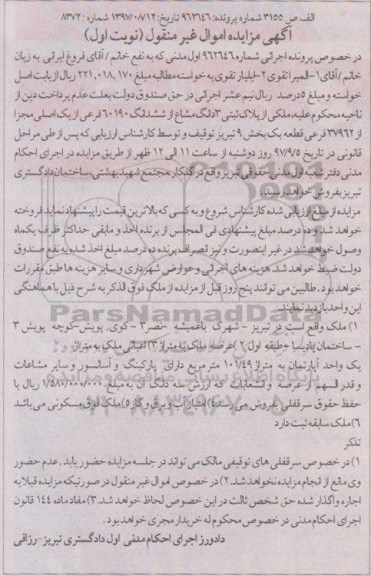 الف ص ۳۱۵۵ شماره پرونده: ۹۶۲۶۴۶ تاریخ: ۱۳۹۷/۰۸/۱۲ شماره: ۸۳۷۲
آگهی مزایده اموال غیر منقول (نوبت اول)
در خصوص پرونده اجرائی شماره ۹۶۲۶۴۶ اول مدنی که به نفع خانم / آقای فروغ ایرانی به زیان
خانم / آقای ۱-المیرا تقوی ۲-ایلیار تقوی به خواسته مطالبه مبلغ ۲۲۱,۰۱۸,۱۷۰ ریال بابت اصل
خواسته و مبلغ ۵ درصد ریال نیم عشر اجرائی در حق صندوق دولت بعلت عدم پرداخت دین از
ناحیه محکوم علیه، ملکی از پلاک ثبتی ۳ دانگ مشاع از ششدانگ ۶۰۱۹۰ فرعی از یک اصلی مجزا
از ۳۷۹۶۲ فرعی قطعه یک بخش ۹ تبریز توقیف و توسط کارشناس ارزیابی که پس از طی مراحل
قانونی در تاریخ ۹۷/۹/۵ روز دوشنبه از ساعت ۱۱ الی ۱۲ ظهر از طریق مزایده در اجرای احکام
مدنی دفتر شعب اول مدنی حقوقی تبریز واقع در گلکار مجتمع شهید بهشتی، ساختمان دادگستری
تبریز بفروش خواهد رسید.
مزایده از مبلغ ارزیابی شده کارشناس شروع و به کسی که بالاترین قیمت را پیشنهاد نماید فروخته
خواهد شد. و ده درصد مبلغ پیشنهادی فی المجلس از برنده اخذ و مابقی حداکثر ظرف یکماه
وصول خواهد شد در غیر اینصورت و نیز انصراف برنده ده درصد مبلغ اخذ شده به نفع صندوق
دولت ضبط خواهد شد. هزینه های اجرائی و عوارض شهرداری و سایر هزینه ها طبق مقررات
خواهد بود. طالبین می توانند پنج روز قبل از مزایده از ملک فوق الذکر به شرح ذیل با هماهنگی
این واحد بازدید نمایند.
۱) ملک واقع است در تبریز - شهرک باغمیشه - نصر ۳ - کوی پویش - کوچه پویش ۳
- ساختمان پادیسا - طبقه اول ۲) عرصه ملک به متراژ ۳) اعیانی ملک به متراژ
یک واحد آپارتمان به متراژ ۱۰۷/۴۹ متر مربع دارای پارکینگ و آسانسور و سایر مشاعات
و قدر السهم از عرصه و انشعابات که ارزش سه دانگ آن به مبلغ ۱/۵۸۰/۰۰۰/۰۰۰ ریال با
حفظ حقوق سرقفلی بفروش می رسد ۴) امتیاز آب و برق و گاز ۵) ملک فوق مسکونی می باشد
۶) ملک سابقه ثبت دارد
تذکر
۱) در خصوص سرقفلی های توقیفی مالک می تواند در جلسه مزایده حضور یابد , عدم حضور
وی مانع از انجام مزایده نخواهد شد. ۲) در خصوص اموال غیر منقول در صورتیکه مزایده قبلا به
اجاره واگذار شده حق شخص ثالث در این خصوص لحاظ خواهد شد. ۳) مفاد ماده ۱۴۴ قانون
اجرای احکام مدنی در خصوص محکوم له خریدار مجری خواهد بود.
دادورز اجرای احکام مدنی اول دادگستری تبریز - رزاقی
ParsNamadData